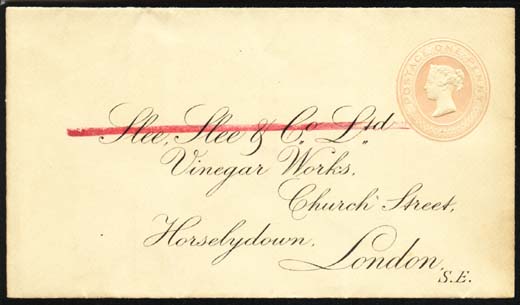 POSTAGE ONE PENNY
Slee, Slee & Co. Ltd
Vinegar Works,
Church Street,
Horselydown,
London,
S.E.